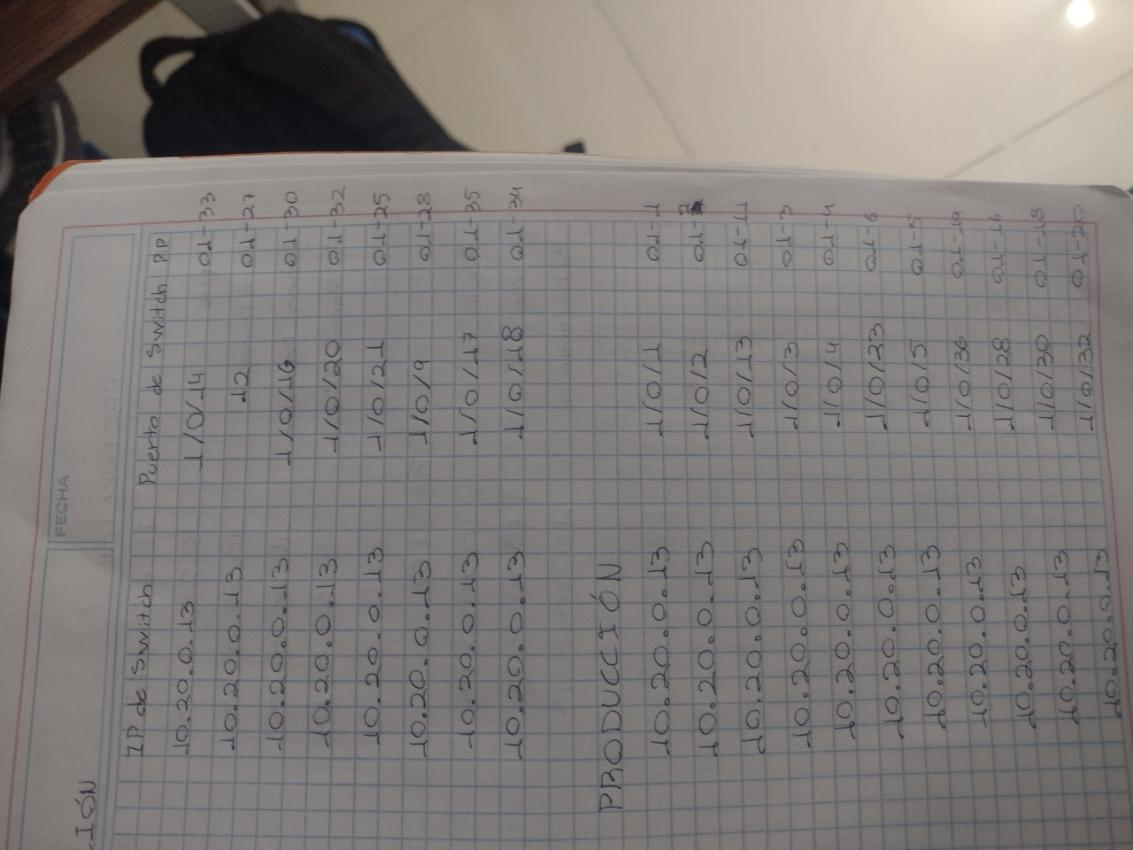 FECHA
IÓN
IP de Switch Puerto de Switch PP
10.20.0.13 1/0/14 01-33
10.20.0.13 12 01-27
10.20.0.13 1/0/16 01-30
10.20.0.13 1/0/20 01-32
10.20.0.13 1/0/21 01-25
10.20.0.13 1/0/9 01-28
10.20.0.13 1/0/17 01-35
10.20.0.13 1/0/18 01-34
PRODUCCIÓN
10.20.0.13 1/0/1 01-1
10.20.0.13 1/0/2 01-2
10.20.0.13 1/0/13 01-11
10.20.0.13 1/0/3 01-3
10.20.0.13 1/0/4 01-4
10.20.0.13 1/0/33 01-6
10.20.0.13 1/0/5 01-5
10.20.0.13 1/0/36 01-19
10.20.0.13 1/0/28 01-16
10.20.0.13 1/0/30 01-18
10.20.0.13 1/0/32 01-20